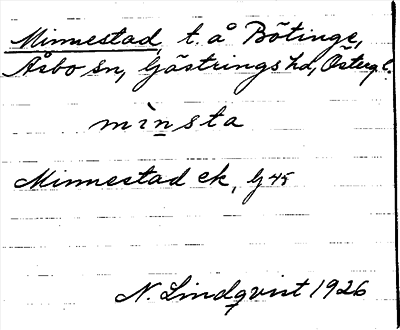 Minnestad, t. å Bötinge,
Åsbo sn, Göstrings hd, Östergl.
mìn̲sta
Minnestad ek, G 45
N. Lindqvist 1926